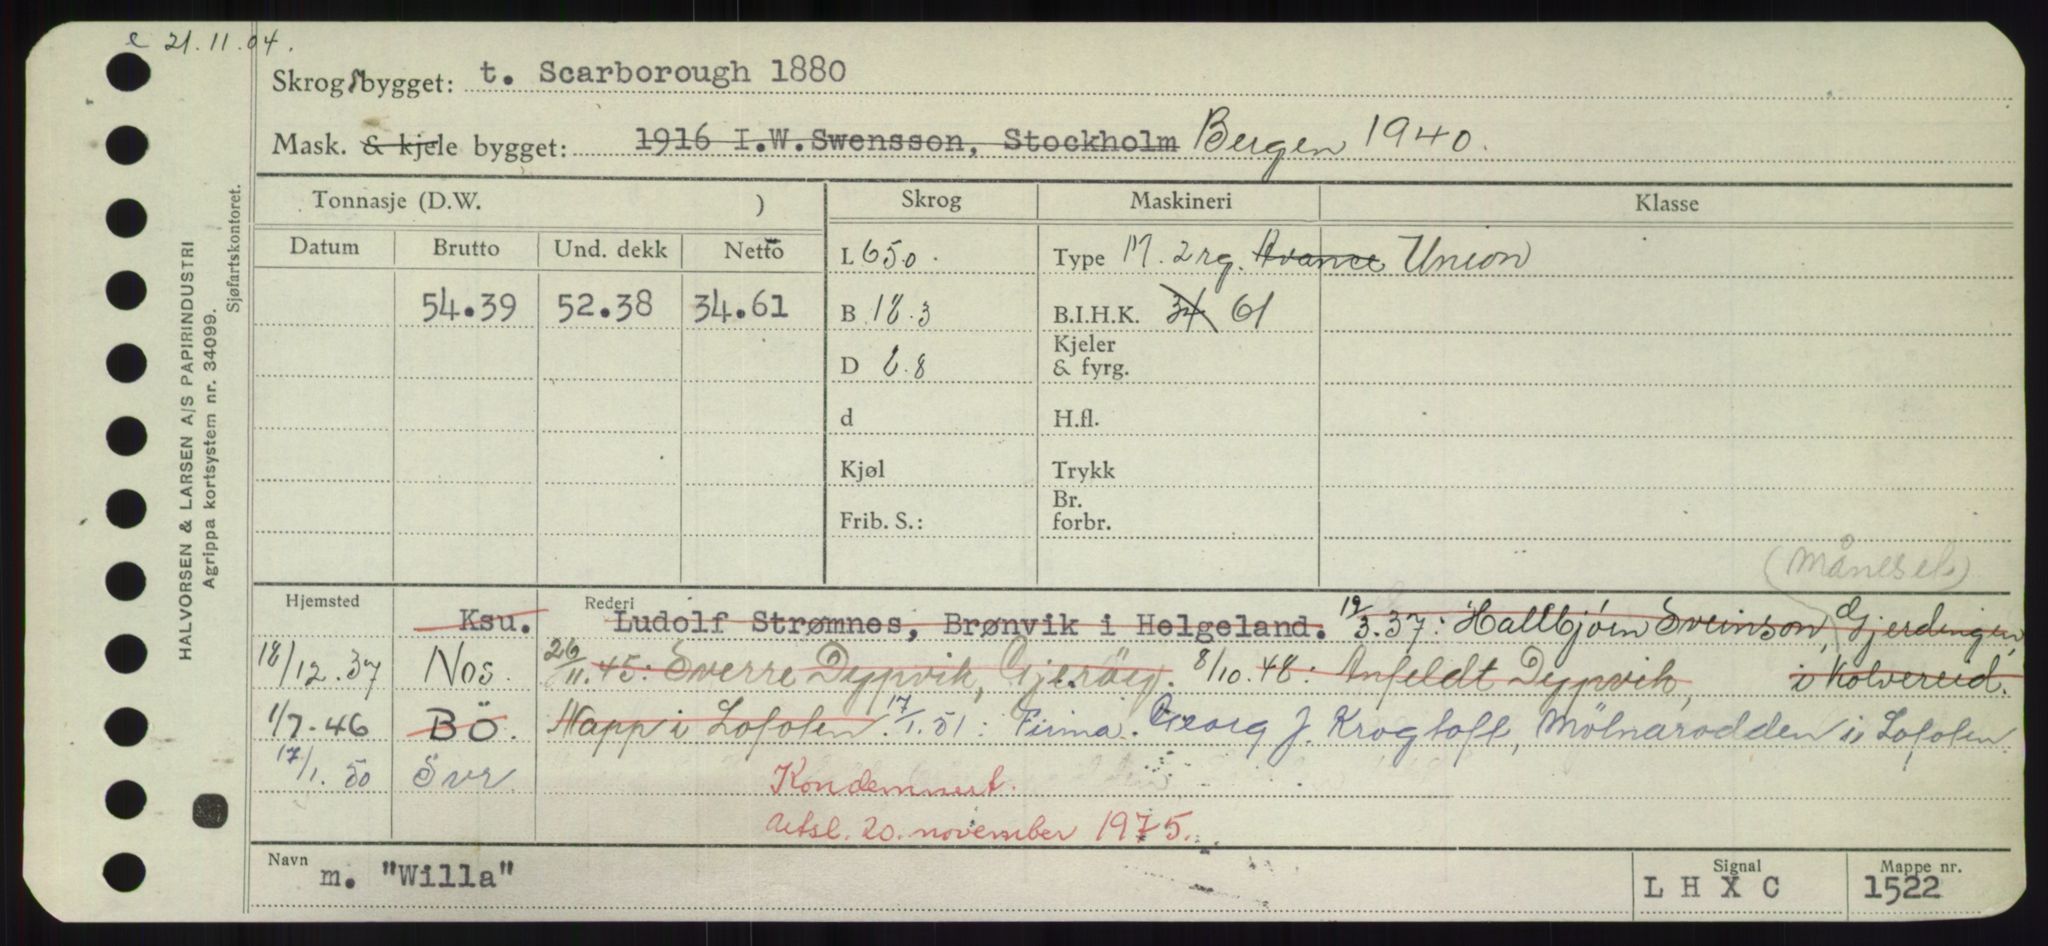 e 21.11.04.
Skrog bygget: t. Scarborough 1880
Mask. & kjele bygget: 1916 I.W.Swensson, Stockholm Bergen 1940.
Tonnasje (D.W. ) Skrog Maskineri Klasse
Datum Brutto Und. dekk Netto
L 65.0. Type M. 2 rg. Avance Union
54.39 52.38 34.61 B 18.3 B.I.H.K. 34 61
Kjeler
D 6.8 & fyrg.
d H.fl.
Kjøl Trykk
Br.
Frib. S.: forbr.
(Månesel)
Hjemsted Ksu. Rederi Ludolf Strømnes, Brønvik i Helgeland. 12/3.37: Hallbjörn Sveinson, Gjerdingen,
18/12.37 Nos. 26/11.45: Sverre Dypvik, Gjeröy. 8/10.48: Anfeldt Dypvik, i Kolvereid.
1/7-46 BÖ. Napp i Lofoten. 17/1.51: Firma. Georg J. Krogtoft, Mölnarodden i Lofoten.
17/1.50 Svr
Kondemnert.
Utsl. 20. november 1975.
Navn m. "Willa" Signal L H X C Mappe nr. 1522
HALVORSEN & LARSEN A/S PAPIRINDUSTRI
Agrippa kortsystem nr. 34099.
Sjøfartskontoret.